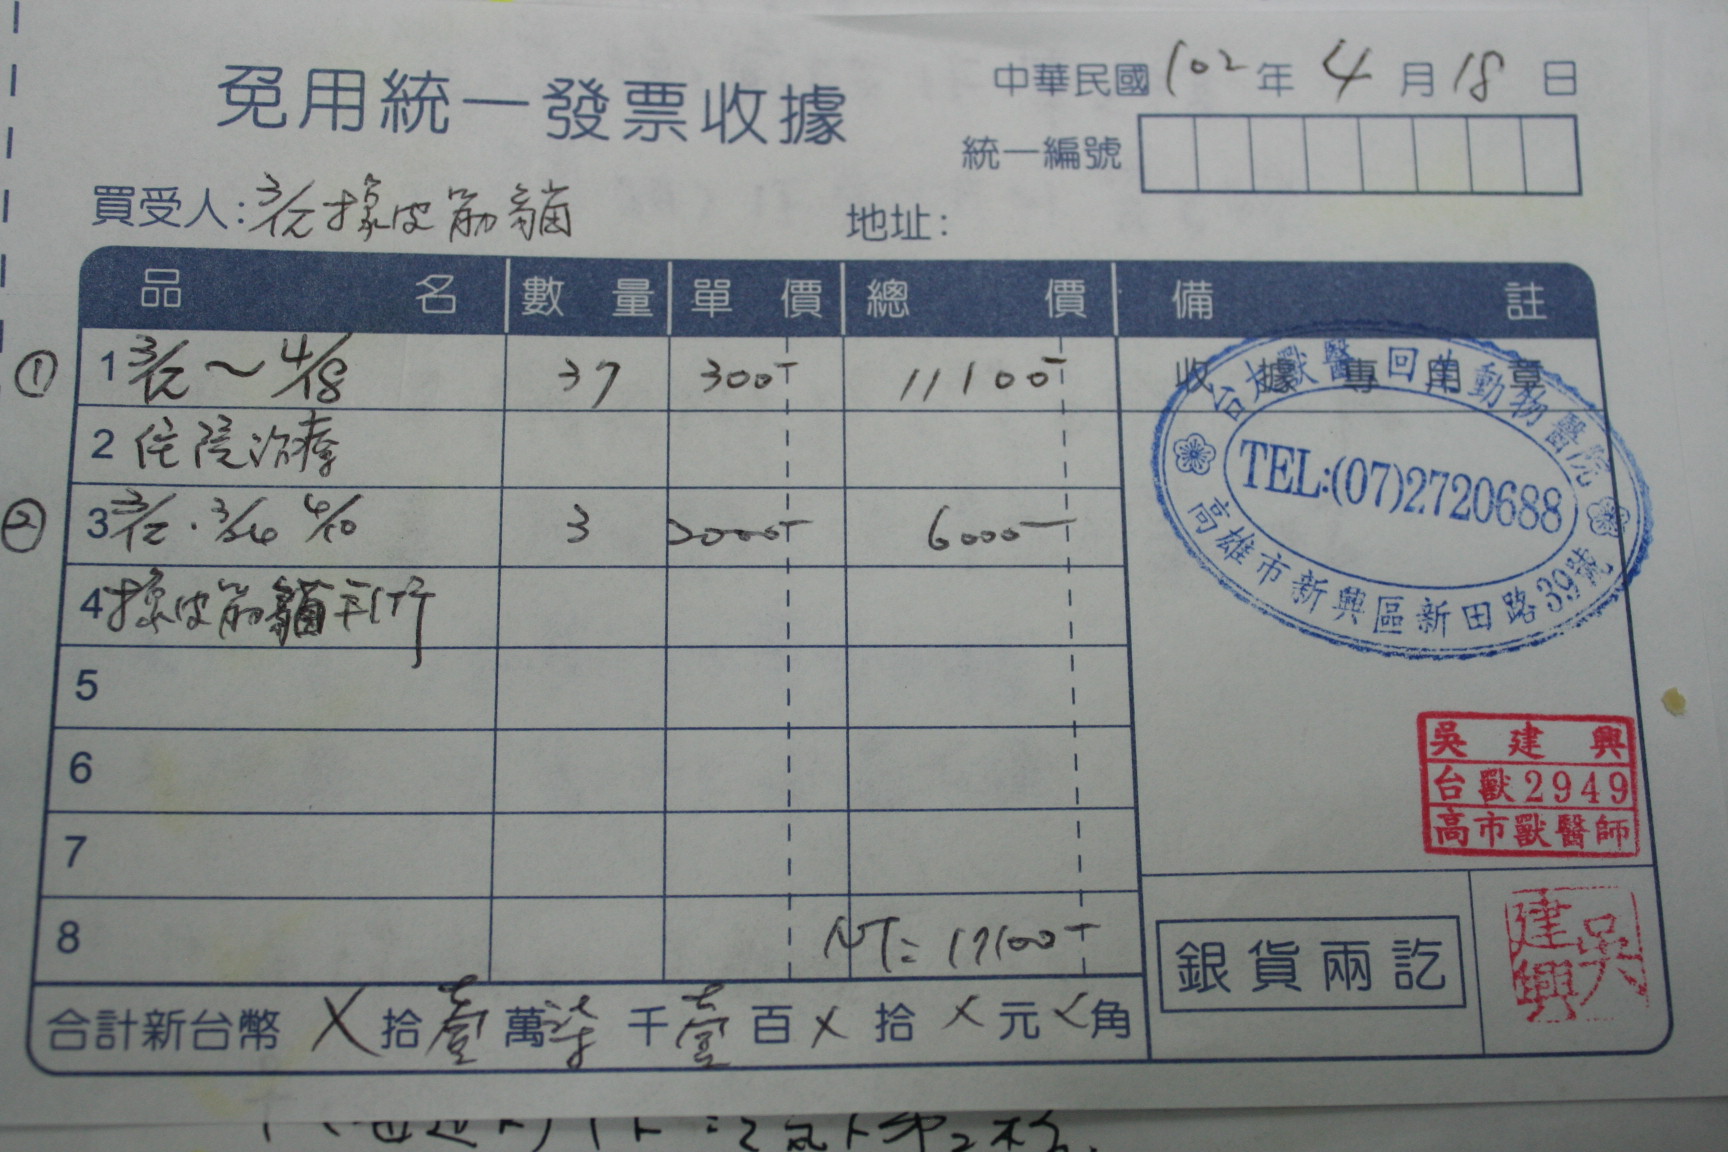 免用統一發票收據
中華民國102年4月18日
統一編號
買受人:3/12橡皮筋貓
地址:
品名 數量 單價 總價 備註
① 1 3/12～4/18 37 300- 11100-
收據專用章
2 住院治療
② 3 3/12．3/26 4/10 3 2000- 6000-
4 橡皮筋貓手術
5
6
7
8 NT=17100-
合計新台幣X拾壹萬柒千壹百X拾X元X角
動物醫院
TEL:(07)2720688
高雄市新興區新田路39號
吳建興
台獸2949
高市獸醫師
銀貨兩訖
吳建興